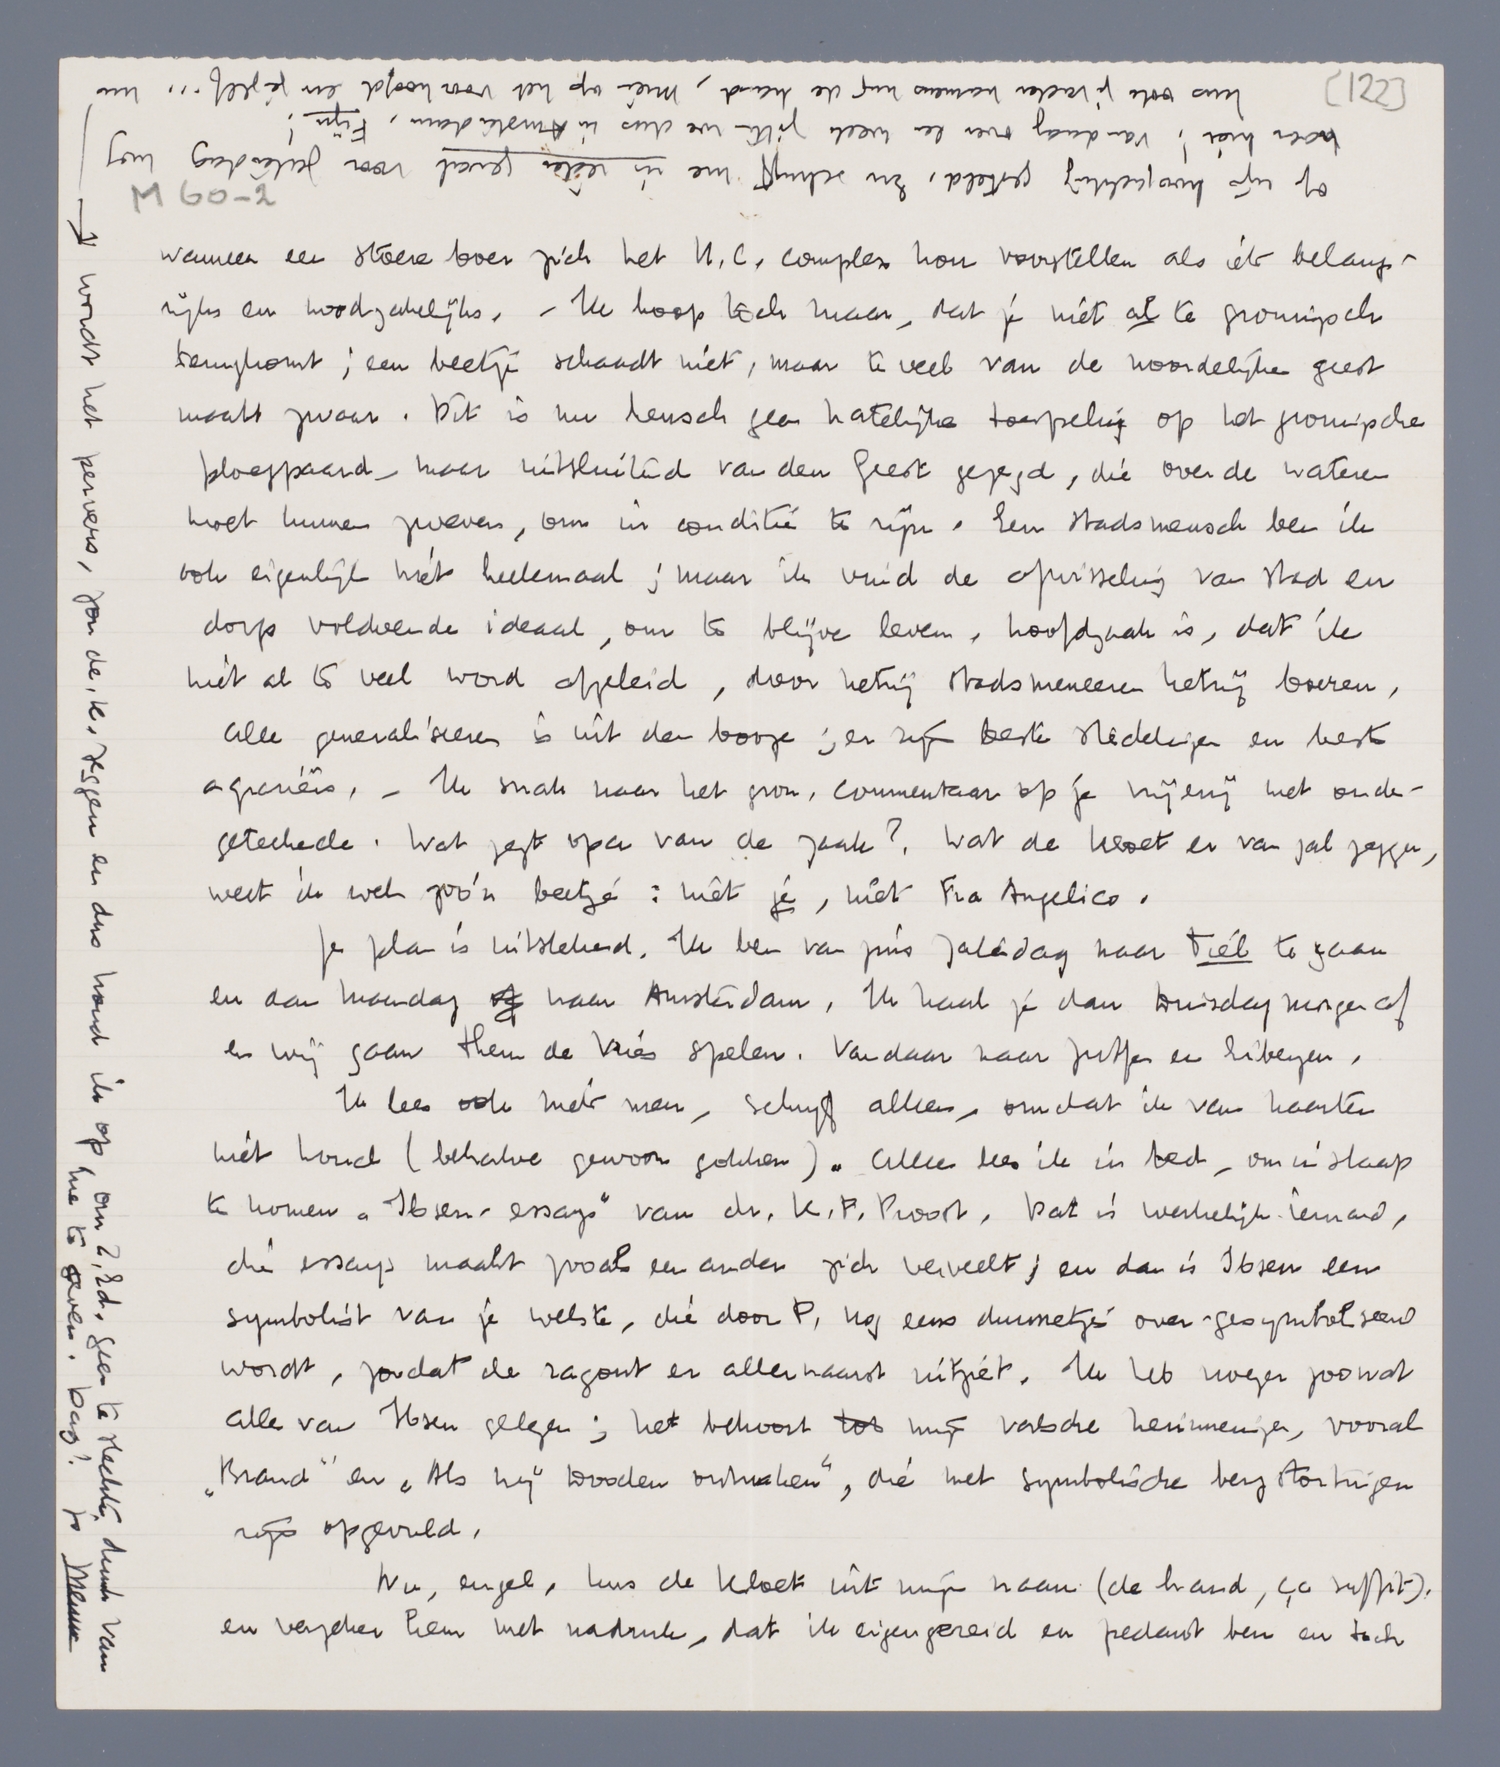 [122]
M 60-2
wanneer een stoere boer zich het N.C. complex kon voorstellen als iets belang-
rijks en noodzakelijks. – Ik hoop toch maar, dat je niet al te groningsch
terugkomt; een beetje schaadt niet, maar te veel van de noordelijke geest
maakt zwaar. Dit is nu heusch geen hatelijke toespeling op het groningsche
ploegpaard, maar uitsluitend van den Geest gezegd, die over de wateren
moet kunnen zweven, om in conditie te zijn. Een stadsmensch ben ik
ook eigenlijk niet heelemaal; maar ik vind de afwisseling van stad en
dorp voldoende ideaal, om te blijve leven. Hoofdzaak is, dat ik
niet al te veel word afgeleid, door hetzij stadsmeneeren hetzij boeren.
Alle generaliseeren is uit den booze; er zijn beste stedelingen en beste
agrariërs. – Ik snak naar het gron. commentaar op je vrijerij met onder-
geteekende. Wat zegt opa van de zaak? Wat de kloet er van zal zeggen,
weet ik wel zoo'n beetje: niet je, niet Fra Angelico.
Je plan is uitstekend. Ik ben van plan Zaterdag naar Tiel te gaan
en dan Maandag naar Amsterdam. Ik haal je dan Dinsdagmorgen af
en wij gaan Theun de Vries spelen. Vandaar naar Zutfen en Eibergen.
Ik lees ook niet meer, schrijf alleen, omdat ik van kaarten
niet houd (behalve gewoon gokken). Alleen lees ik in bed, om in slaap
te komen „Ibsen-essays" van dr. K.F. Proost. Dat is werkelijk iemand,
die essays maakt zooals een ander zich verveelt; en dan is Ibsen een
symbolist van je welste, die door P. nog eens dunnetjes over-gesymboliseerd
wordt, zoodat de ragout er allernaarst uitziet. Ik heb vroeger zoowat
alles van Ibsen gelezen; het behoort tot mijn valsche herinneringen, vooral
„Brand" en „Als wij dooden ontwaken", die met symbolische bergstortingen
zijn opgevuld.
Nu, engel, kus de kloet uit mijn naam (de hand, ça suffit).
en verzeker hem met nadruk, dat ik eigengereid en pedant ben en toch
op zijn hoogachting gesteld. En schrijf me in ieder geval voor Zaterdag nog
hier! Vandaag over een week zitten we dus in Amsterdam. Fijn!
kus ook je vader namens mij de hand, Mien op het voorhoofd en jezelf... nu
wordt het pervers, zou de K. zeggen en dus houd ik op om U.Ed. geen te slechten dunk van
me te geven. Dag! je Menno